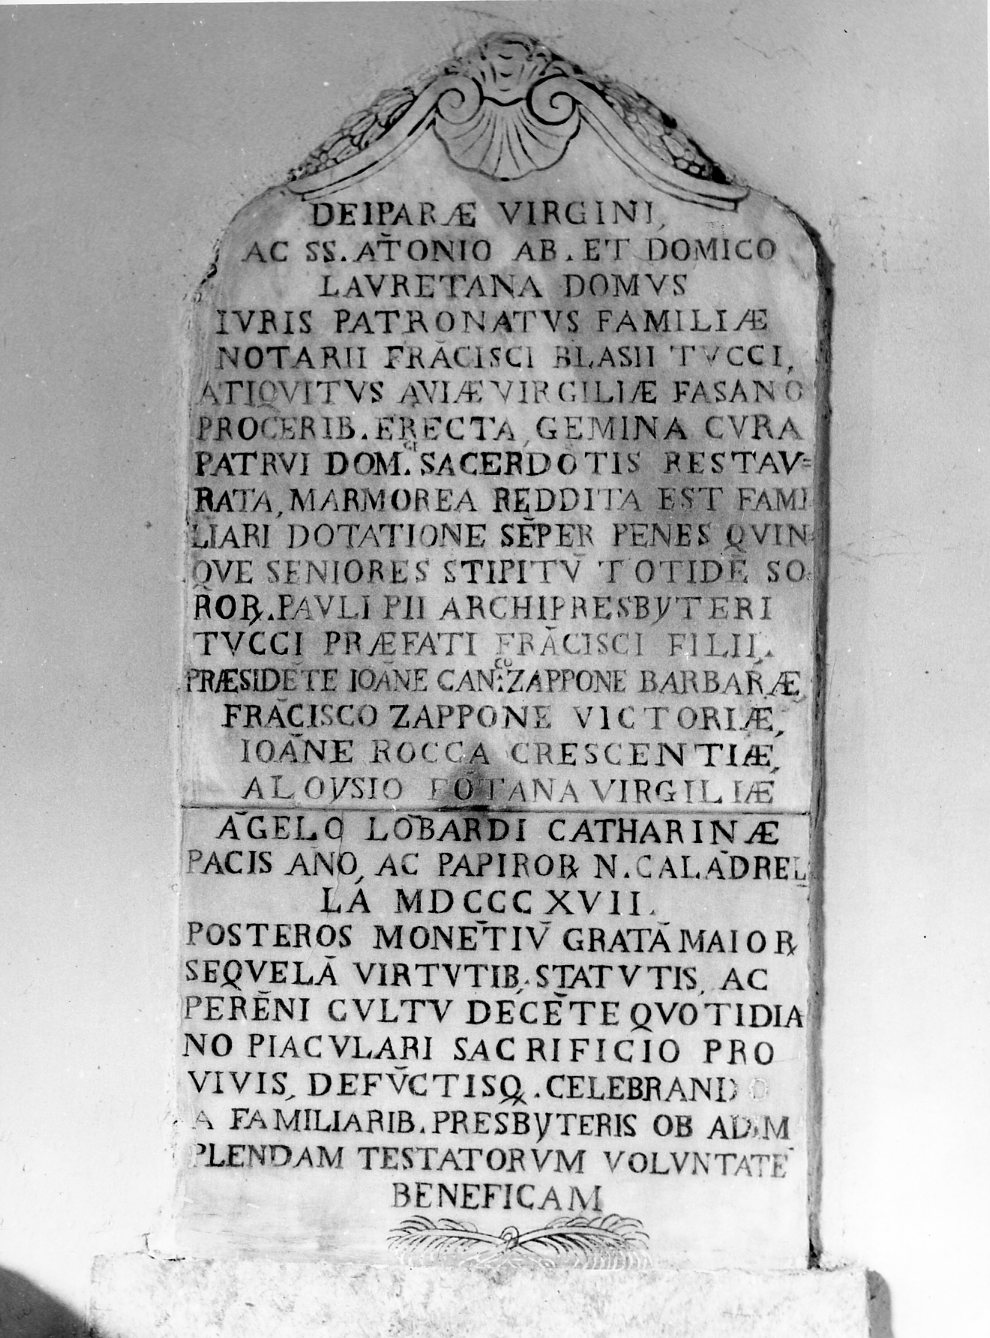 DEIPARÆ VIRGINI,
AC SS. AT̄ONIO AB. ET DOMICO
LAVRETANA DOMVS
IVRIS PATRONATVS FAMILIÆ
NOTARII FRĀCISCI BLASII TVCCI,
ATIQVITVS AVIÆ VIRGILIÆ FASANO
PROCERIB. ERECTA, GEMINA CVRA
PATRVI DOM.CI SACERDOTIS RESTAV=
RATA, MARMOREA REDDITA EST FAMI
LIARI DOTATIONE SĒPER PENES QVIN=
QVE SENIORES STIPITV̄ TOTIDĒ SO
ROꝜ. PAVLI PII ARCHIPRESBYTERI
TVCCI PRÆFATI FRĀCISCI FILII.
PRÆSIDĒTE IOĀNE CAN:CU ZAPPONE BARBARÆ,
FRĀCISCO ZAPPONE VICTORIÆ,
IOĀNE ROCCA CRESCENTIÆ,
ALOYSIO FŌTANA VIRGILIÆ
ĀGELO LŌBARDI CATHARINÆ
PACIS ANO, AC PAPIROꝜ N. CALĀDREL
LÁ MDCCCXVII.
POSTEROS MONĒTIV̄ GRATĀ MAIOꝜ
SEQVELĀ VIRTVTIB, STATVTIS, AC
PERĒNI CVLTV DECĒTE QVOTIDIA
NO PIACVLARI SACRIFICIO PRO
VIVIS, DEFV̄CTISQ. CELEBRAND
A FAMILIARIB. PRESBYTERIS OB ADIM
PLENDAM TESTATORVM VOLVNTATĒ
BENEFICAM